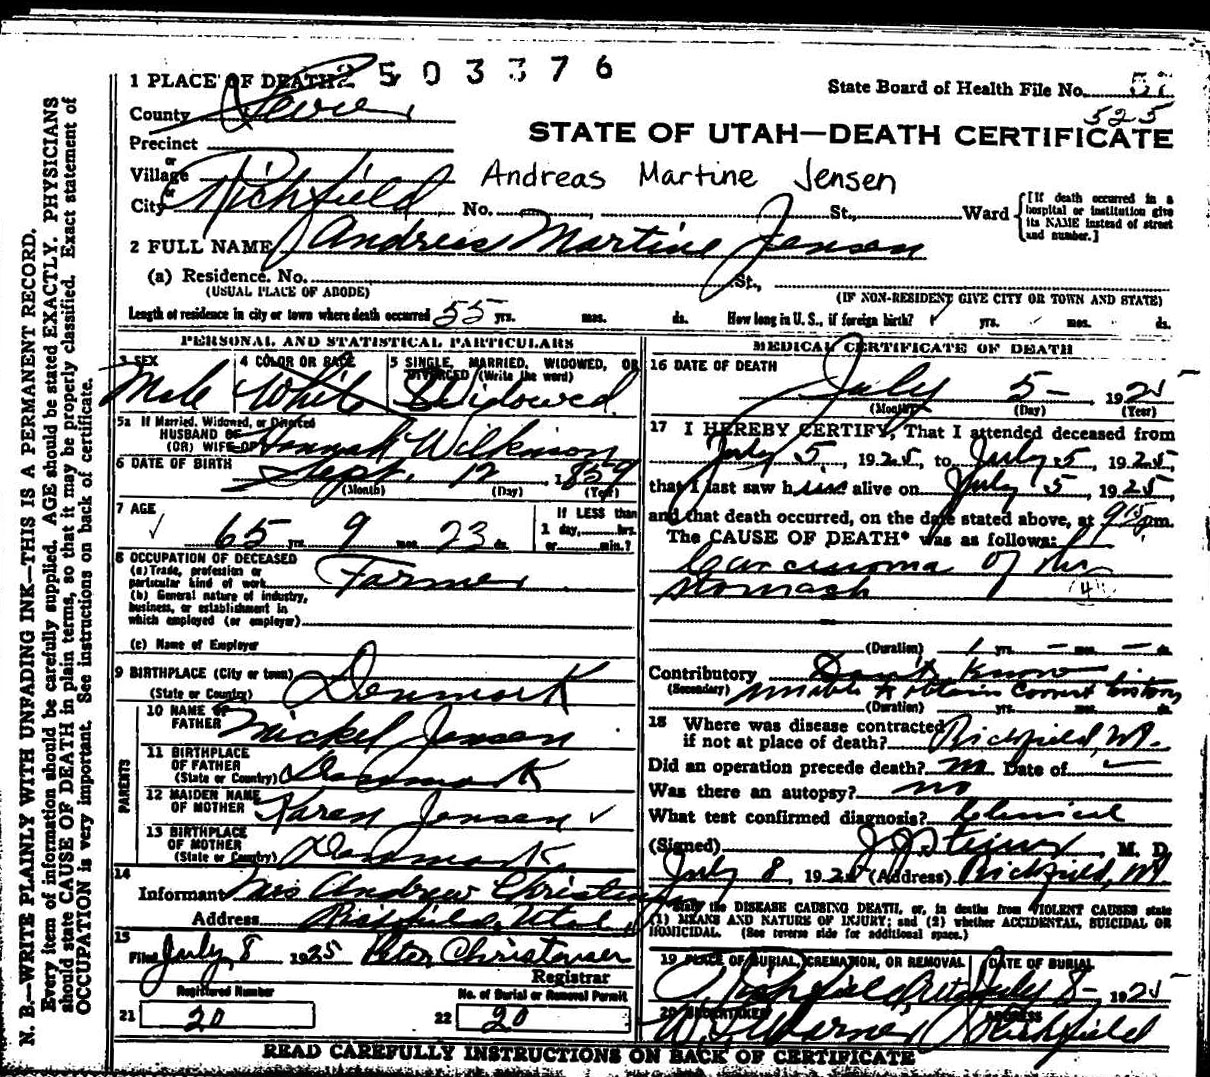 1 PLACE OF DEATH 2503376
State Board of Health File No. 57
525
County Sevier
STATE OF UTAH—DEATH CERTIFICATE
Precinct
or
Village
Andreas Martine Jensen
or
City Richfield No. , St., Ward
[If death occurred in a hospital or institution give its NAME instead of street and number.]
2 FULL NAME Andreas Martine Jensen
(a) Residence. No. St.,
(USUAL PLACE OF ABODE) (IF NON-RESIDENT GIVE CITY OR TOWN AND STATE)
Length of residence in city or town where death occurred 55 yrs. mos. ds. How long in U. S., if foreign birth? yrs. mos. ds.
PERSONAL AND STATISTICAL PARTICULARS
3 SEX
Male
4 COLOR OR RACE
White
5 SINGLE, MARRIED, WIDOWED, OR DIVORCED (Write the word)
Widowed
5a If Married, Widowed, or Divorced
HUSBAND OF
(OR) WIFE OF Hannah Wilkinson
6 DATE OF BIRTH Sept. 12 1859
(Month) (Day) (Year)
7 AGE
65 yrs. 9 mos. 23 ds.
If LESS than
1 day, hrs.
or min.?
8 OCCUPATION OF DECEASED
(a) Trade, profession or
particular kind of work Farmer
(b) General nature of industry,
business, or establishment in
which employed (or employer)
(c) Name of Employer
9 BIRTHPLACE (City or town)
(State or Country) Denmark
PARENTS
10 NAME OF
FATHER Mickel Jensen
11 BIRTHPLACE
OF FATHER
(State or Country) Denmark
12 MAIDEN NAME
OF MOTHER Karen Jensen
13 BIRTHPLACE
OF MOTHER
(State or Country) Denmark
14
Informant Mrs Andrew Christensen
Address Richfield, Utah
15
Filed July 8 1925 Peter Christensen
Registrar
Registered Number
21 20
No. of Burial or Removal Permit
22 20
MEDICAL CERTIFICATE OF DEATH
16 DATE OF DEATH
July 5- 1925
(Month) (Day) (Year)
17 I HEREBY CERTIFY, That I attended deceased from
July 5, 1925, to July 5, 1925,
that I last saw him alive on July 5, 1925,
and that death occurred, on the date stated above, at 915 pm.
The CAUSE OF DEATH* was as follows:
Carcinoma of the
stomach (4)
(Duration) 1 yrs. — mos. — ds.
Contributory Don't Know
(Secondary) unable to obtain correct history
(Duration) yrs. mos. ds.
18 Where was disease contracted
if not at place of death? Richfield, Ut.
Did an operation precede death? no Date of —
Was there an autopsy? no
What test confirmed diagnosis? Clinical
(Signed) J J Steiner, M. D.
July 8, 1925 (Address) Richfield, Ut
*State the DISEASE CAUSING DEATH, or, in deaths from VIOLENT CAUSES state
(1) MEANS AND NATURE OF INJURY; and (2) whether ACCIDENTAL, SUICIDAL OR
HOMICIDAL. (See reverse side for additional space.)
19 PLACE OF BURIAL, CREMATION, OR REMOVAL
Richfield Utah
DATE OF BURIAL
July 8- 1925
20 UNDERTAKER
W. Warner
ADDRESS
Richfield
READ CAREFULLY INSTRUCTIONS ON BACK OF CERTIFICATE
N. B.—WRITE PLAINLY WITH UNFADING INK—THIS IS A PERMANENT RECORD.
Every item of information should be carefully supplied. AGE should be stated EXACTLY. PHYSICIANS
should state CAUSE OF DEATH in plain terms, so that it may be properly classified. Exact statement of
OCCUPATION is very important. See instructions on back of certificate.